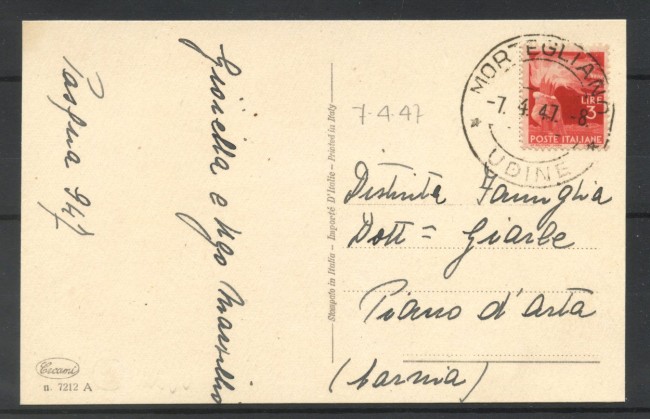 Pasqua 947
Gioiella e Ugo
Stampato in Italia - Importé D'Italie - Printed in Italy
Cecami
n. 7212 A
7-4-47
MORTEGLIANO
-7. 4. 47. -8.
* *
UDINE
LIRE
3
POSTE ITALIANE
Distinta Famiglia
Dott = Giarbe
Piano d'Arta
(Carnia)